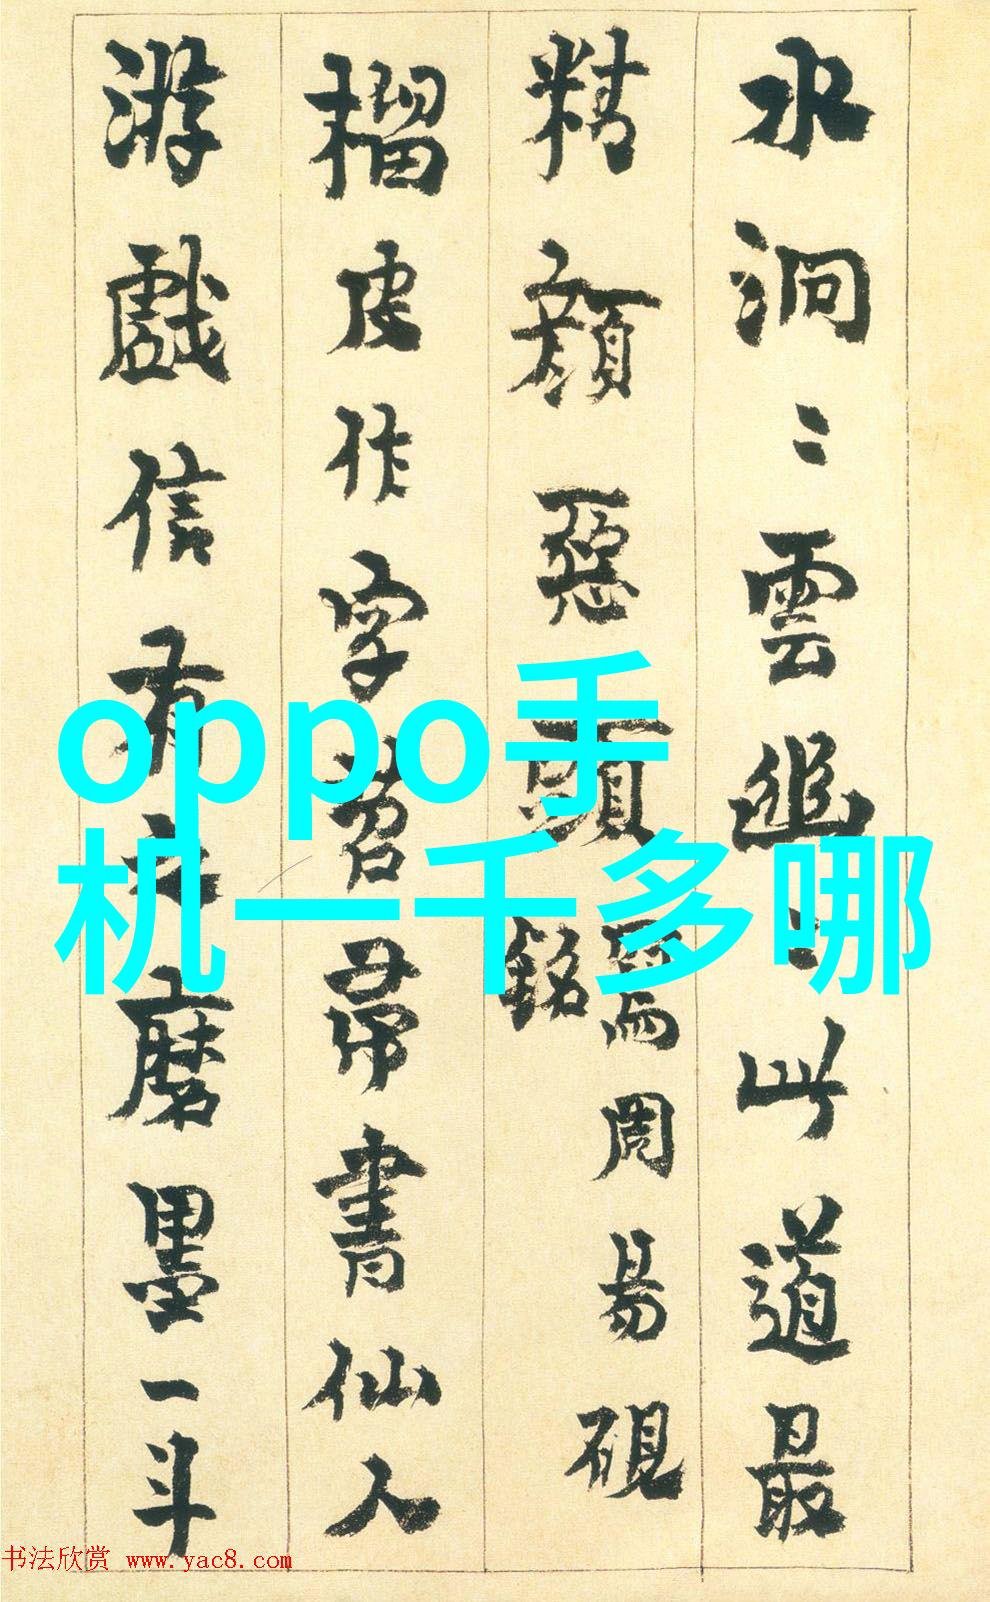 水洞〻雲幽〻此道最
精顏惡頭
銘
爲周易硯
榴皮作字苕帚書仙人
游戲信有之磨墨一斗
oppo手
机一千多哪
书法欣赏 www.yac8.com